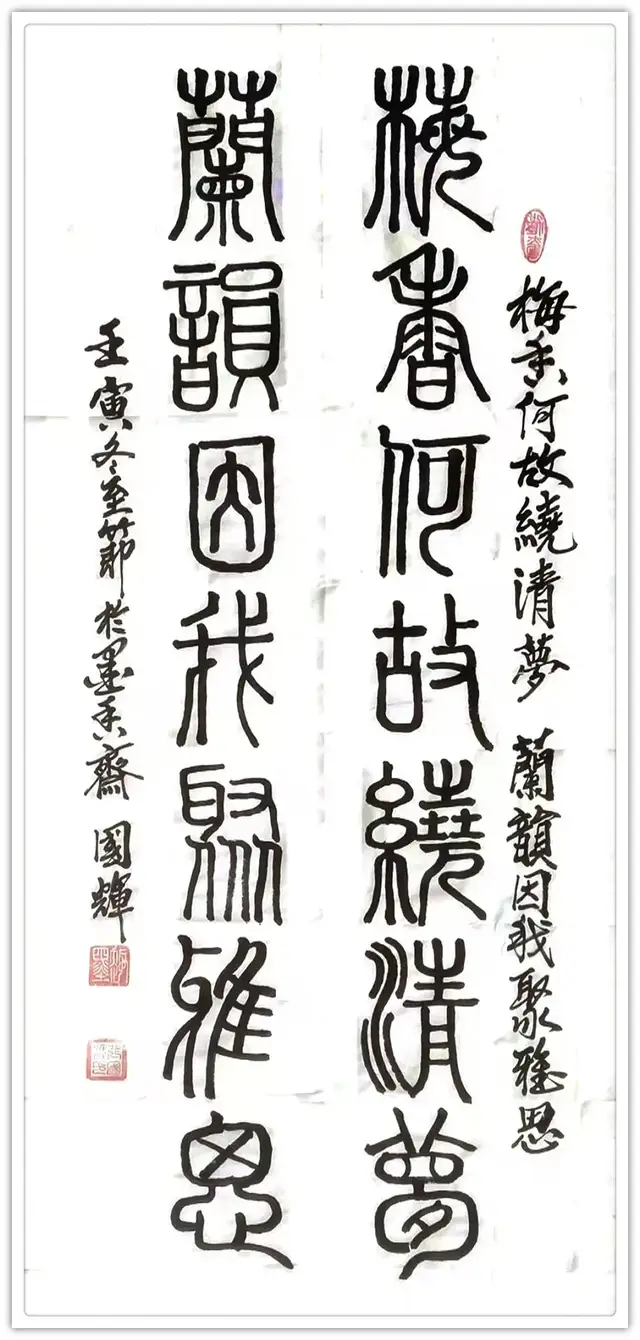 梅香何故繞清夢 蘭韻因我聚雅思
梅香何故繞清夢
蘭韻因我聚雅思
壬寅冬至節於墨香齋 國輝